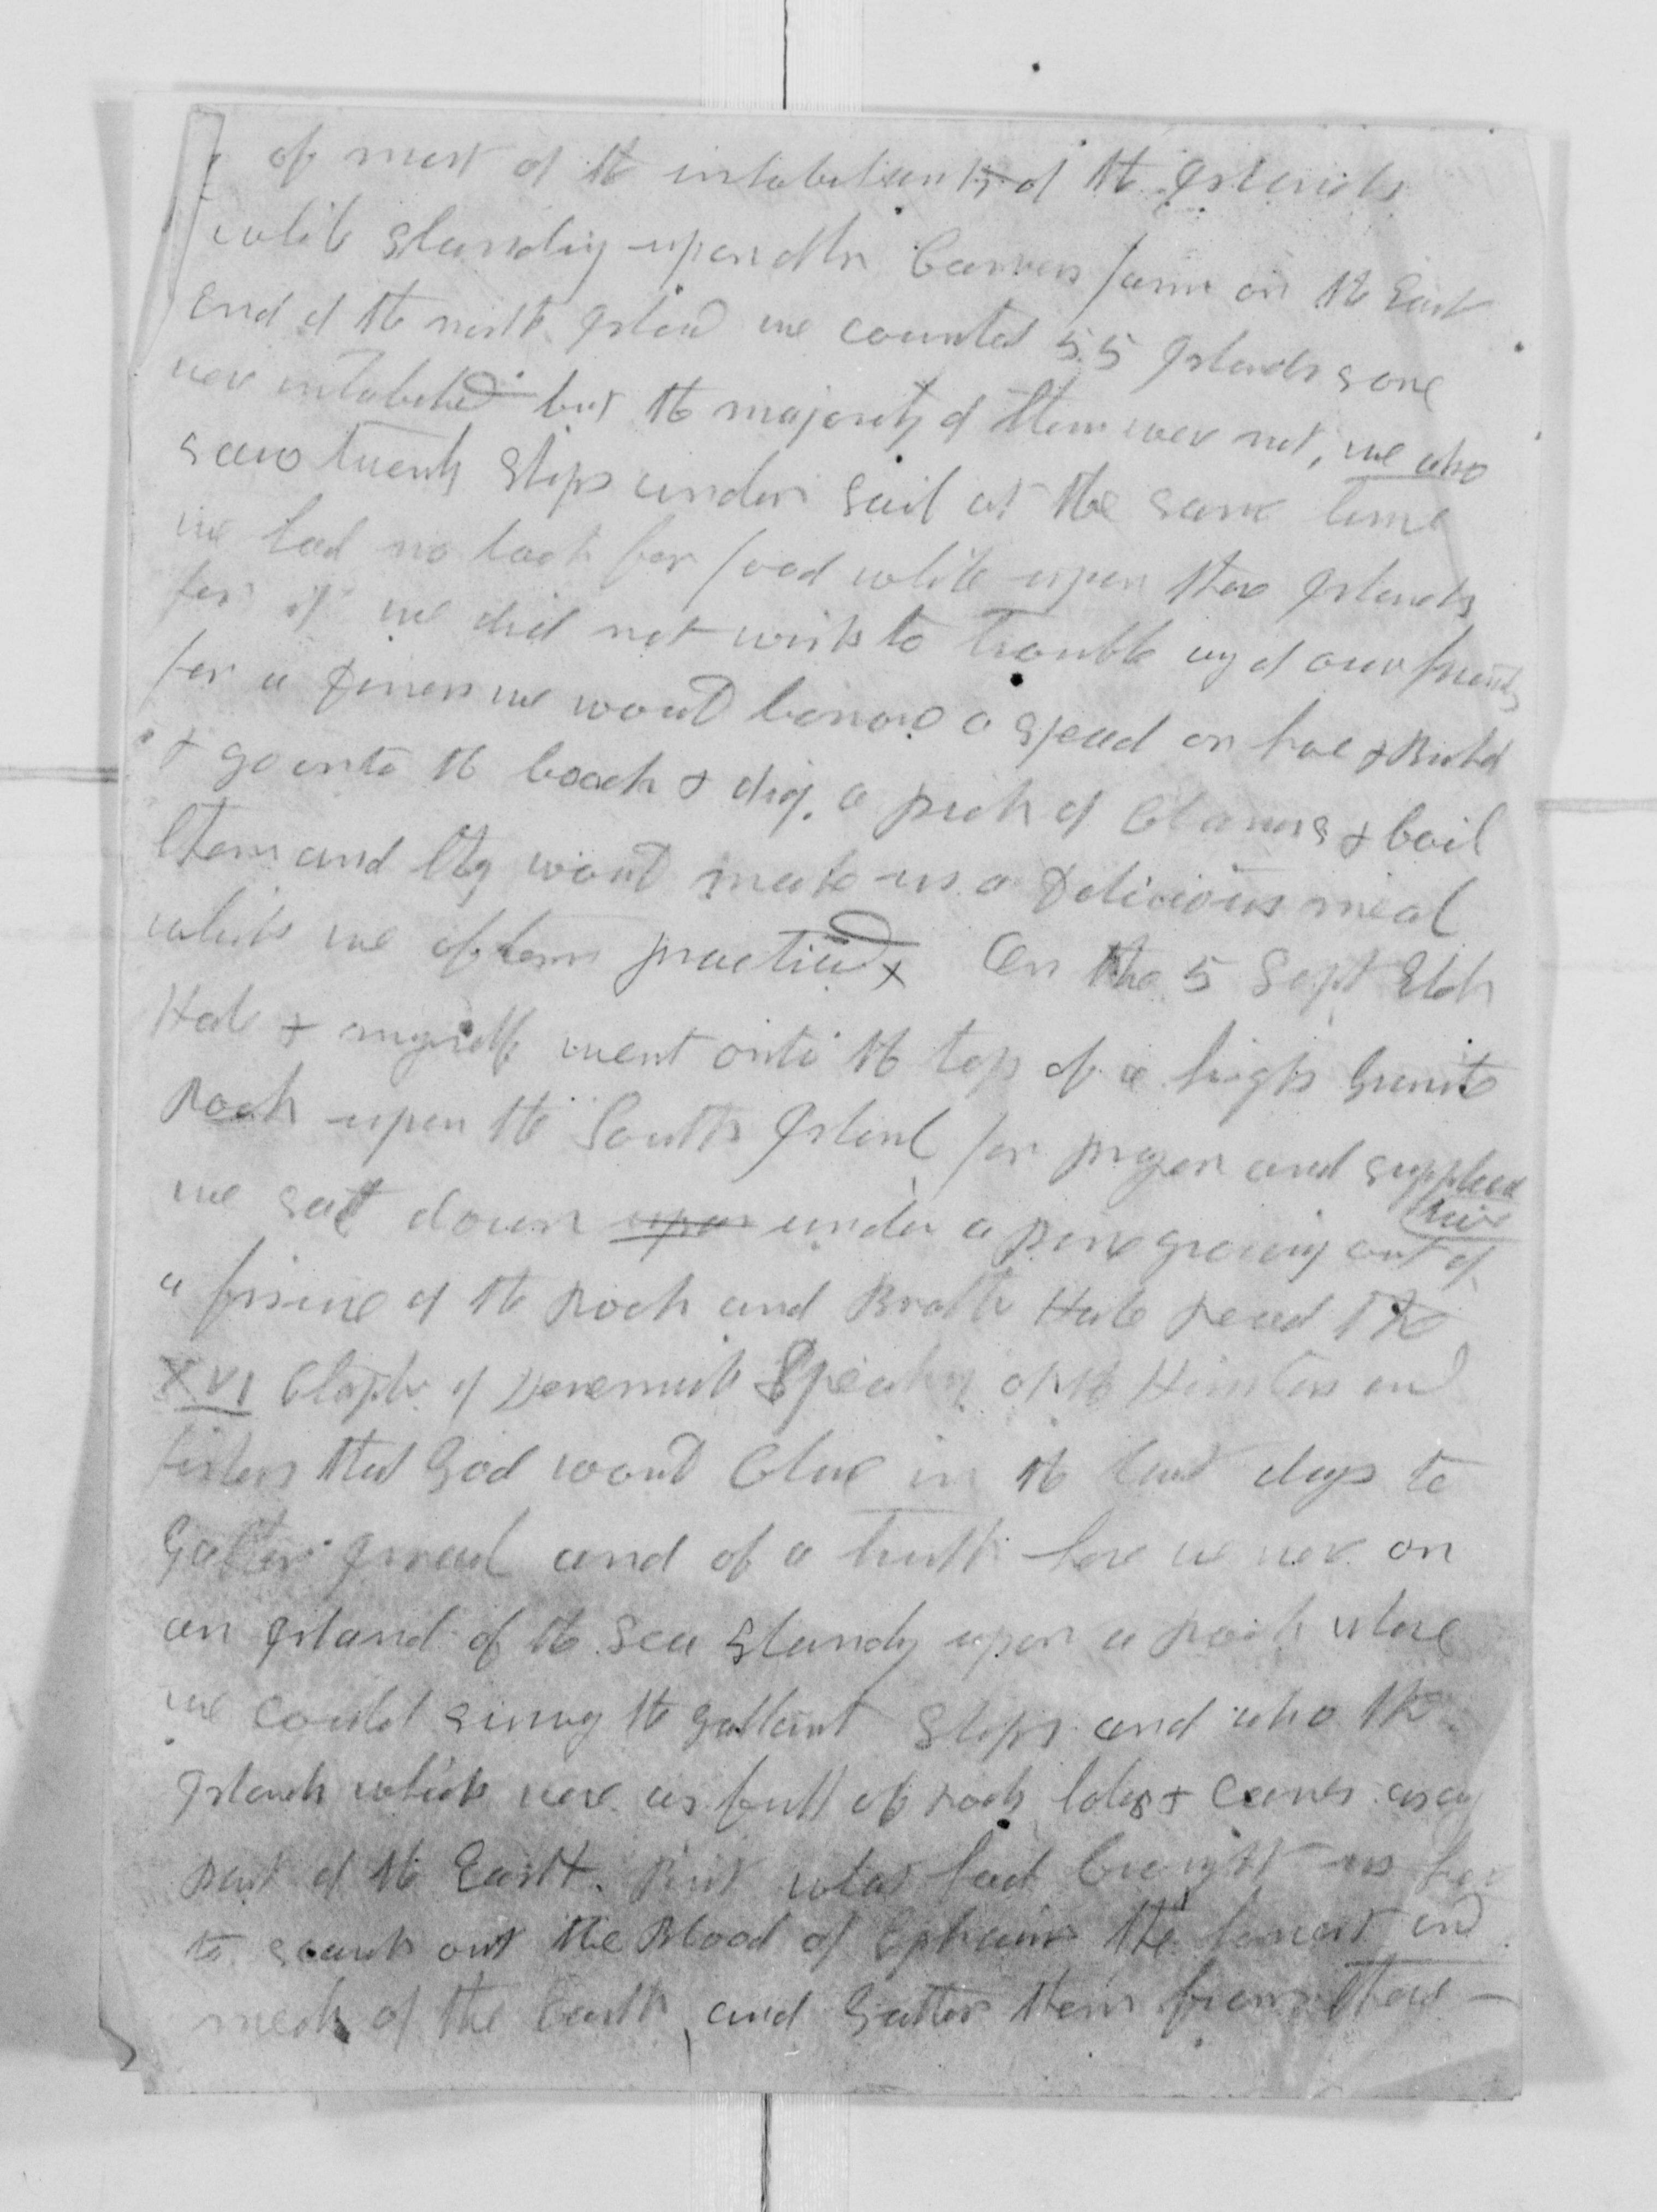 of most of the inhabitants of the Islands
while standing upon Mr Carvers farm on the East
End of the north Island we counted 55 Islands some
were inhabited but the majority of them were not, we also
saw twenty Ships under sail at the same time
we had no lack for food while upon these Islands
for if we did not wish to trouble any of our friends
for a Dinner we would borrow a spead or hoe & Bucket
& go onto the beach & dig. a peck of Clams & boil
them and they would make us a Delicious meal
which we often practiced On the 5 Sept Eldr
Hale & myself went onto the top of a high Granite
Rock upon the South Island for prayer and supplication
we sat down upon under a pine growing out of
a fissure of the Rock and Brother Hale read the
XVI Chapter of Jeremiah Speaking of the Hunters and
fishers that God would Chuse in the last days to
Gather Israel and of a truth here we were on
an Island of the Sea standing upon a rock where
we could survey the gallant Ships and also the
Islands which were as full of rocks holes & caves as any
part of the Earth. But what had brought us here
to search out the Blood of Ephraim the honest and
meek of the Earth, and Gather them from these